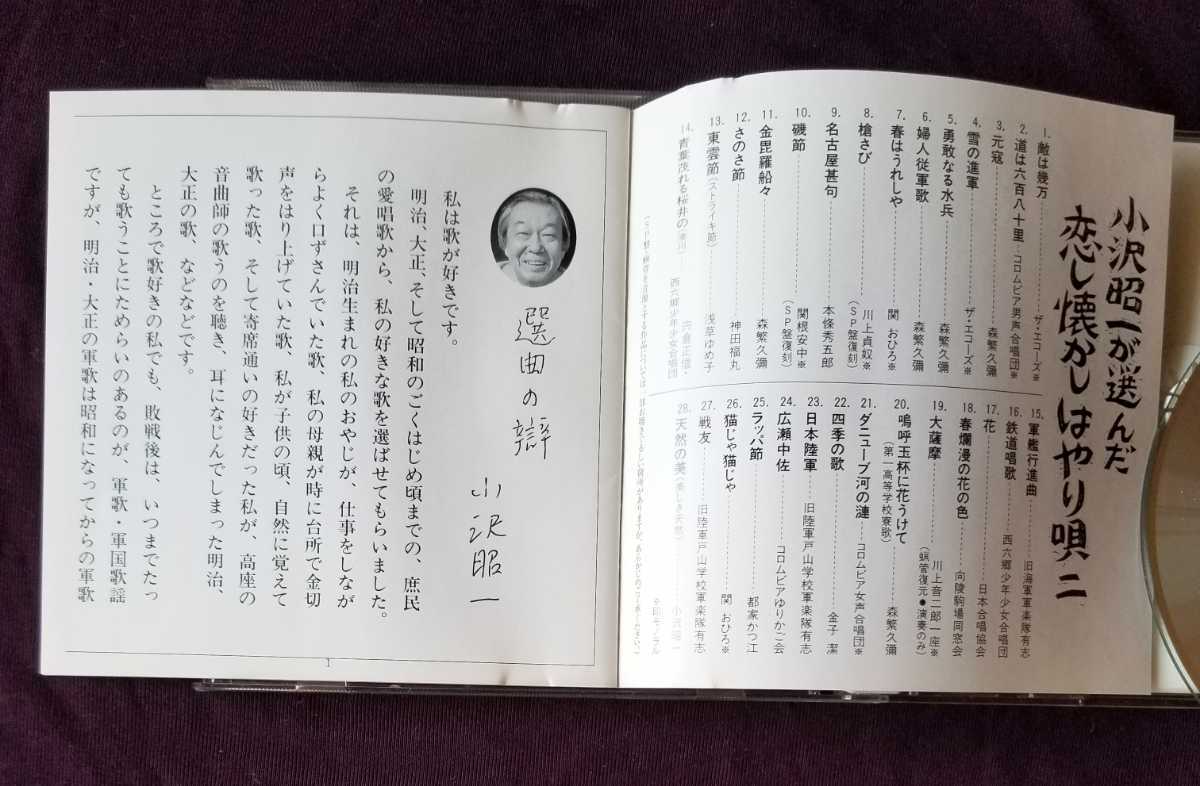 小沢昭一が選んだ
恋し懐かしはやり唄 二
1. 敵は幾万 ザ・エコーズ※
2. 道は六百八十里 コロムビア男声合唱団※
3. 元寇 森繁久彌
4. 雪の進軍 ザ・エコーズ※
5. 勇敢なる水兵 森繁久彌
6. 婦人従軍歌 森繁久彌
7. 春はうれしや 関 おひろ※
8. 槍さび 川上貞奴※
(SP盤復刻)
9. 名古屋甚句 本條秀五郎
10. 磯節 関根安中※
(SP盤復刻)
11. 金毘羅船々 森繁久彌
12. さのさ節 神田福丸
13. 東雲節(ストライキ節) 浅草ゆめ子
14. 青葉茂れる桜井の 西六郷少年少女合唱団
15. 軍艦行進曲 旧海軍軍楽隊有志
16. 鉄道唱歌 西六郷少年少女合唱団
17. 花 日本合唱協会
18. 春爛漫の花の色 向陵駒場同窓会
19. 大薩摩 川上音二郎一座※
(蝋管復元●演奏のみ)
20. 嗚呼玉杯に花うけて 森繁久彌
(第一高等学校寮歌)
21. ダニューブ河の漣 コロムビア女声合唱団※
22. 四季の歌 金子 潔
23. 日本陸軍 旧陸軍戸山学校軍楽隊有志
24. 広瀬中佐 コロムビアゆりかご会
25. ラッパ節 都家かつ江
26. 猫じゃ猫じゃ 関 おひろ※
27. 戦友 旧陸軍戸山学校軍楽隊有志
28. 天然の美(美しき天然) 小沢昭一
選曲の辯
小沢昭一
私は歌が好きです。
明治、大正、そして昭和のごくはじめ頃までの、庶民
の愛唱歌から、私の好きな歌を選ばせてもらいました。
それは、明治生まれの私のおやじが、仕事をしなが
らよく口ずさんでいた歌、私の母親が時に台所で金切
声をはり上げていた歌、私が子供の頃、自然に覚えて
歌った歌、そして寄席通いの好きだった私が、高座の
音曲師の歌うのを聴き、耳になじんでしまった明治、
大正の歌、などなどです。
ところで歌好きの私でも、敗戦後は、いつまでたっ
ても歌うことにためらいのあるのが、軍歌・軍国歌謡
ですが、明治・大正の軍歌は昭和になってからの軍歌
1